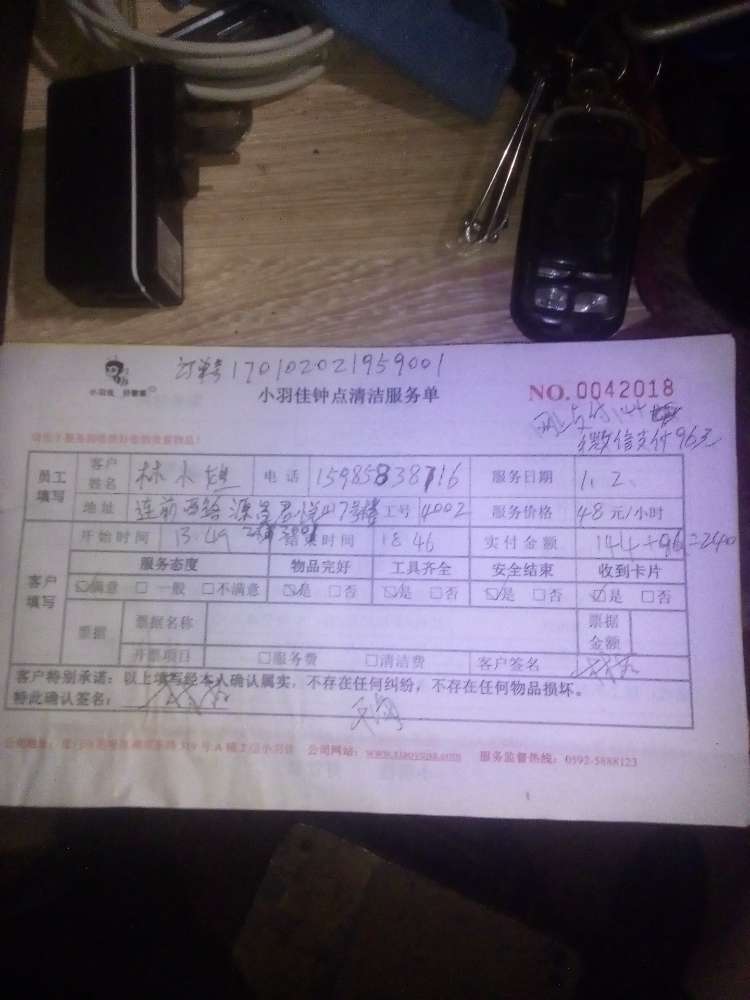 订单号170102021959001
小羽佳 好管家
小羽佳钟点清洁服务单
NO.0042018
网上支付144
微信支付96元
员工填写 客户姓名 林小姐 电话 15985838716 服务日期 1.2.
地址 连前西路 工号 4002 服务价格 48元/小时
开始时间 13:49 结束时间 18:46 实付金额 144+96=240
客户填写 服务态度 物品完好 工具齐全 安全结束 收到卡片
☑满意 □一般 □不满意 ☑是 □否 ☑是 □否 ☑是 □否 ☑是 □否
票据 票据名称 票据金额
开票项目 □服务费 □清洁费 客户签名
客户特别承诺：以上填写经本人确认属实，不存在任何纠纷，不存在任何物品损坏。
特此确认签名：
公司网站：www.xiaoyujia.com 服务监督热线：0592-5888123